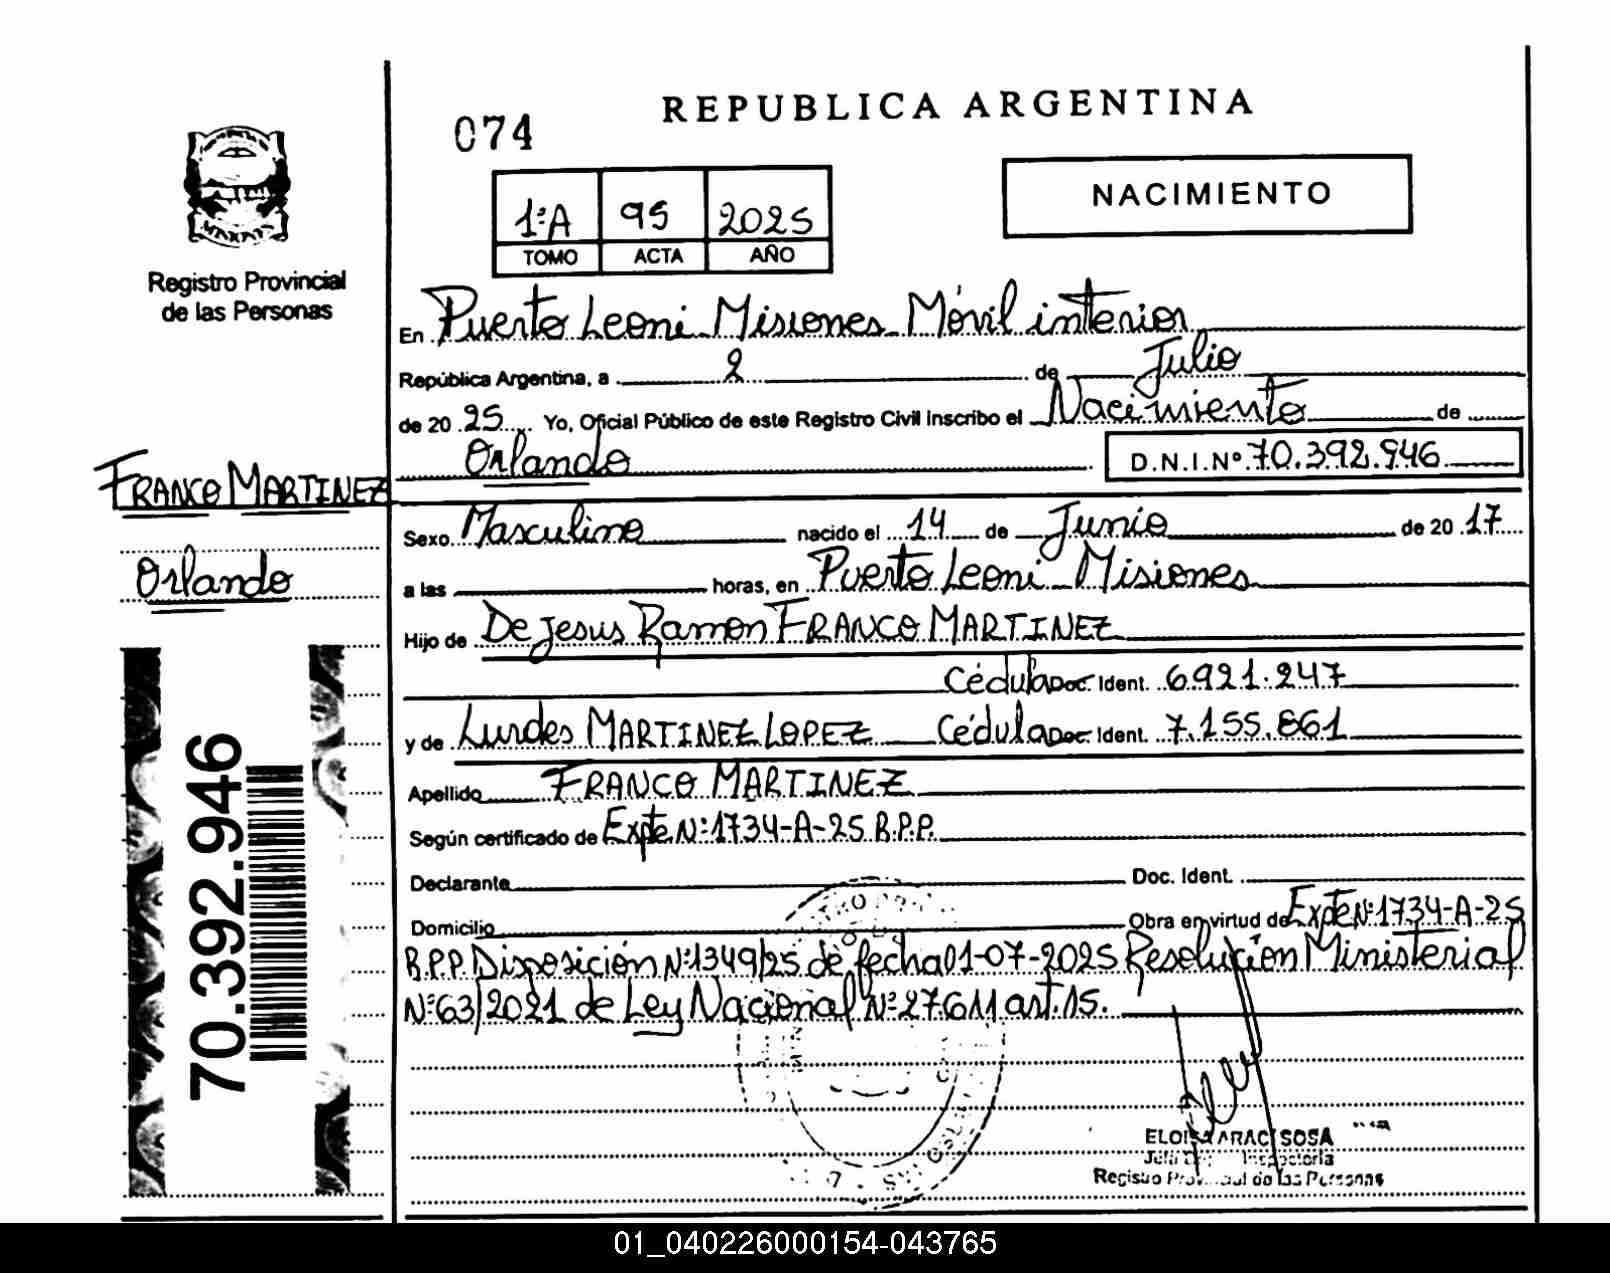 REPUBLICA ARGENTINA
074
NACIMIENTO
1ªA 95 2025
TOMO ACTA AÑO
Registro Provincial
de las Personas
En Puerto Leoni Misiones Móvil interior
República Argentina, a 2 de Julio
de 2025 Yo, Oficial Público de este Registro Civil Inscribo el Nacimiento de
Orlando D.N.I.Nº 70.392.946
FRANCO MARTINEZ
Orlando
Sexo Masculino nacido el 14 de Junio de 2017
a las horas, en Puerto Leoni Misiones
Hijo de De Jesus Ramon FRANCO MARTINEZ
Cédula Doc. Ident. 6.921.247
y de Lurdes MARTINEZ LOPEZ Cédula Doc. Ident. 7.155.861
Apellido FRANCO MARTINEZ
Según certificado de Expte Nº 1734-A-25 R.P.P.
Declarante Doc. Ident.
Domicilio Obra en virtud de Expte Nº 1734-A-25
R.P.P. Disposición Nº 1349/25 de fecha 01-07-2025 Resolución Ministerial
Nº 63/2021 de Ley Nacional Nº 27.611 art. 15.
70.392.946
SOSA
Registro de las Personas
01_040226000154-043765